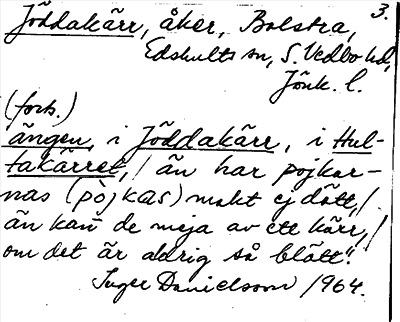 3.
Jöddakärr, åker, Bolstra,
Edshults sn, S. Vedbo hd,
Jönk. l.
(forts.)
ängen, i Jöddakärr, i Hul-
takärret, / än har pojkar-
nas (pòjkas) makt ej dött, /
än kan de meja av ett kärr, /
om det är aldrig så blött."
Inger Danielsson 1964.